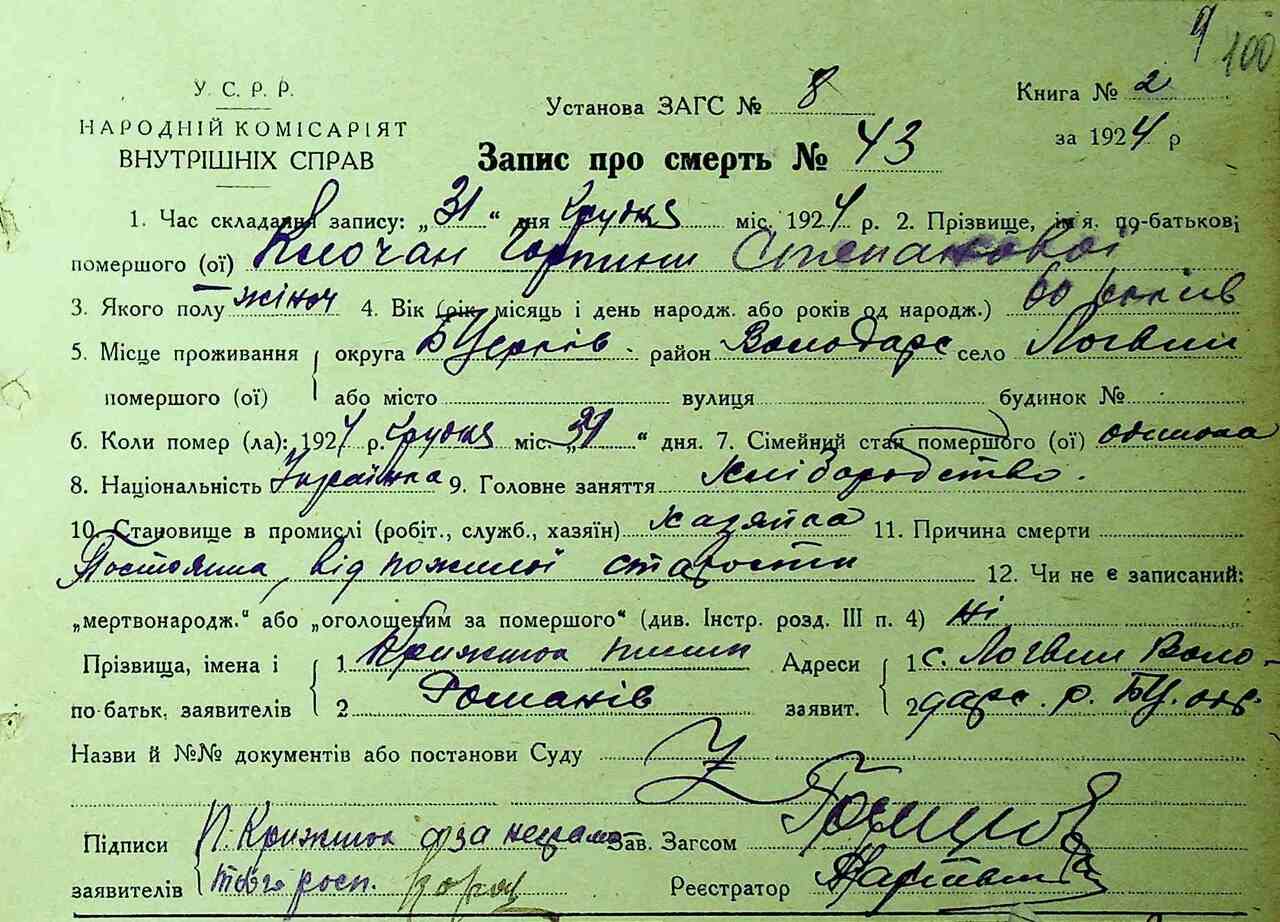 9
100
У. С. Р. Р.
НАРОДНІЙ КОМІСАРІЯТ
ВНУТРІШНІХ СПРАВ
Установа ЗАГС № 8
Книга № 2
за 1924 р
Запис про смерть № 43
1. Час складання запису: „31“ дня Грудня міс. 1924 р. 2. Прізвище, ім'я, по-батькові
помершого (ої) Клочан Горпини Степанової
3. Якого полу жіноч 4. Вік (рік, місяць і день народж. або років од народж.) 60 років
5. Місце проживання округа БЦерків район Володарс село Логвин
помершого (ої) або місто вулиця будинок №
6. Коли помер (ла): 1924 р. Грудня міс. „31“ дня. 7. Сімейний стан помершого (ої) одинока
8. Національність Українка 9. Головне заняття хліборобство.
10. Становище в промислі (робіт., служб., хазяїн) хазяйка 11. Причина смерти
від пожилої старости 12. Чи не є записаний:
„мертвонародж.“ або „оголошеним за помершого“ (див. Інстр. розд. III п. 4) ні
Прізвища, імена і 1. Крижток Адреси 1 с. Логвин Воло-
по-батьк. заявителів 2 Романів заявит. 2 дарс. р. БЦ. окр.
Назви й №№ документів або постанови Суду
Підписи П. Крижток а за неграмо Зав. Загсом
заявителів того росп. Реєстратор